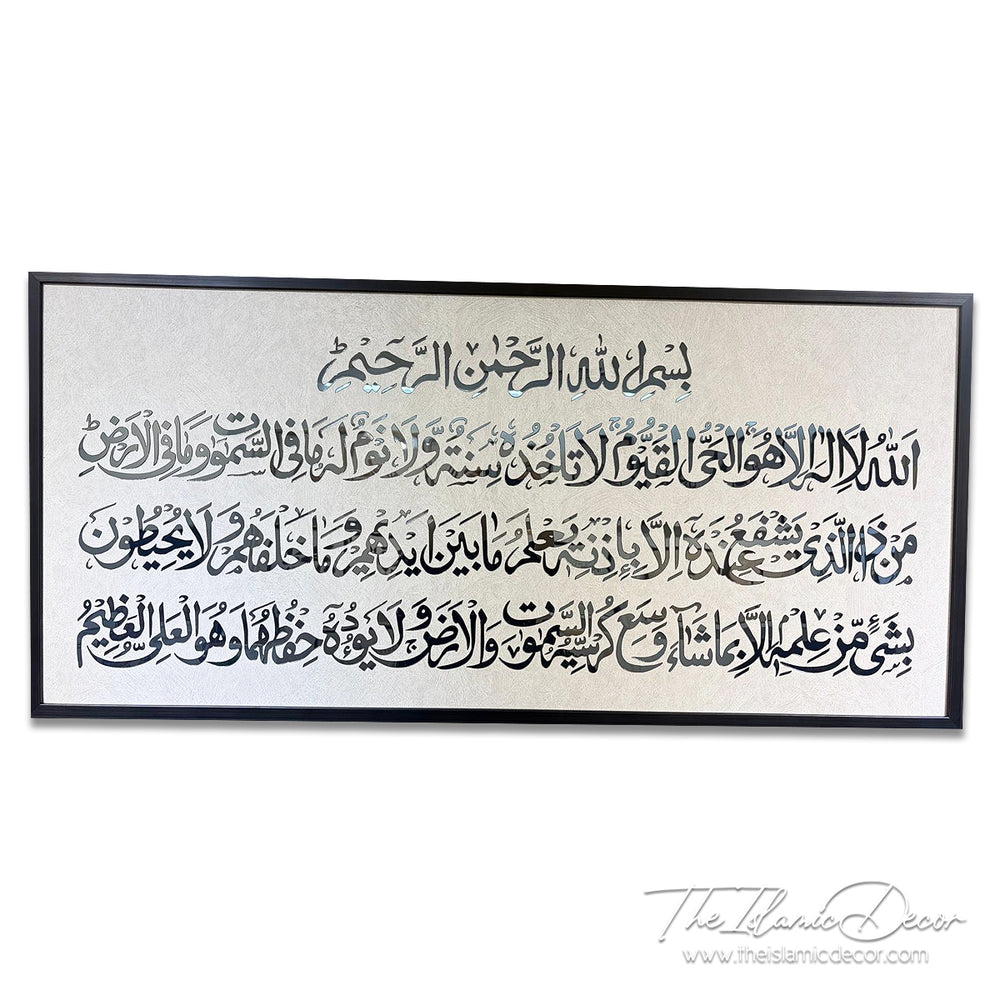 بِسْمِ اللهِ الرَّحْمٰنِ الرَّحِيْمِ
اَللهُ لَا اِلٰهَ اِلَّا هُوَ الْحَيُّ الْقَيُّوْمُ لَا تَاْخُذُهٗ سِنَةٌ وَّلَا نَوْمٌ لَهٗ مَا فِى السَّمٰوٰتِ وَمَا فِى الْاَرْضِ
مَنْ ذَا الَّذِىْ يَشْفَعُ عِنْدَهٗ اِلَّا بِاِذْنِهٖ يَعْلَمُ مَا بَيْنَ اَيْدِيْهِمْ وَمَا خَلْفَهُمْ وَلَا يُحِيْطُوْنَ
بِشَىْءٍ مِّنْ عِلْمِهٖ اِلَّا بِمَا شَآءَ وَسِعَ كُرْسِيُّهُ السَّمٰوٰتِ وَالْاَرْضَ وَلَا يَـُٔوْدُهٗ حِفْظُهُمَا وَهُوَ الْعَلِىُّ الْعَظِيْمُ
The Islamic Decor
www.theislamicdecor.com